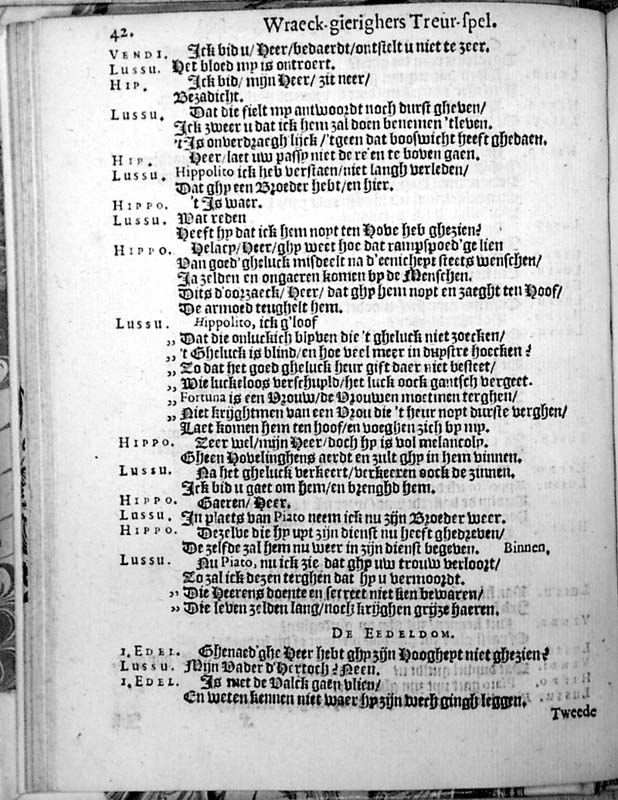 42. Wraeck-gierighers Treur-spel.
VENDI. Ick bid u/ Heer/bedaerdt/ontstelt u niet te zeer.
LUSSU. Het bloed my is ontroert.
HIP. Ick bid/ mijn Heer/ zit neer/
Bezadicht.
LUSSU. Dat die fielt my antwoordt noch durst gheven/
Ick zweer u dat ick hem zal doen benemen 'tleven.
't Is onverdraegh lijck/'tgeen dat booswicht heeft ghedaen.
HIP. Heer/laet uw passy niet de re'en te boven gaen.
LUSSU. Hippolito ick heb verstaen/niet langh verleden/
Dat ghy een Broeder hebt/en hier.
HIPPO. 't Is waer.
LUSSU. Wat reden
Heeft hy dat ick hem noyt ten Hove heb ghezien?
HIPPO. Helacy/Heer/ghy weet hoe dat rampspoed'ge lien
Van goed'gheluck misdeelt na d'eenicheyt steets wenschen/
Ja zelden en ongaeren komen by de Menschen.
Dits d'oorzaeck/Heer/ dat ghy hem noyt en zaeght ten Hoof/
De armoed teughelt hem.
LUSSU. Hippolito, ick g'loof
„ Dat die onluckich blyven die 't gheluck niet zoecken/
„ 't Gheluck is blind/en hoe veel meer in duystre hoecken?
„ Zo dat het goed gheluck heur gift daer niet besteet/
„ Wie luckeloos verschuyld/het luck oock gantsch vergeet.
„ Fortuna is een Vrouw/de Vrouwen moetmen terghen/
„ Niet krijghtmen van een Vrou die 't heur noyt durste verghen/
Laet komen hem ten hoof/en voeghen zich by my.
HIPPO. Zeer wel/mijn Heer/doch hy is vol melancoly.
Gheen Hovelinghens aerdt en zult ghy in hem vinnen.
LUSSU. Na het gheluck verkeert/verkeeren oock de zinnen.
Ick bid u gaet om hem/en brenghd hem.
HIPPO. Gaeren/ Heer.
LUSSU. In plaets van Piato neem ick nu zijn Broeder weer.
HIPPO. Dezelve die hy uyt zijn dienst nu heeft ghedreven
De zelfde zal hem nu weer in zijn dienst begeven. Binnen.
LUSSU. Nu Piato, nu ick zie dat ghy uw trouw verloort/
Zo zal ick dezen terghen dat hy u vermoordt.
„ Die Heerens doente en secreet niet ken bewaren/
„ Die leven zelden lang/noch krijghen grijze haeren.
DE EEDELDOM.
1. EDEL. Ghenaed'ghe Heer hebt ghy zijn Hoogheyt niet ghezien?
LUSSU. Mijn Vader d'Hertoch? Neen.
1. EDEL. Is met de Valck gaen vlien/
En weten kennen niet waer hy zijn wech gingh leggen.
Tweede